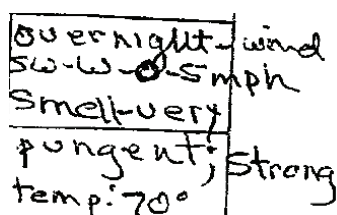 overnight-wind
SW-W-0-5mph
Smell-very
pungent; Strong
temp: 70°